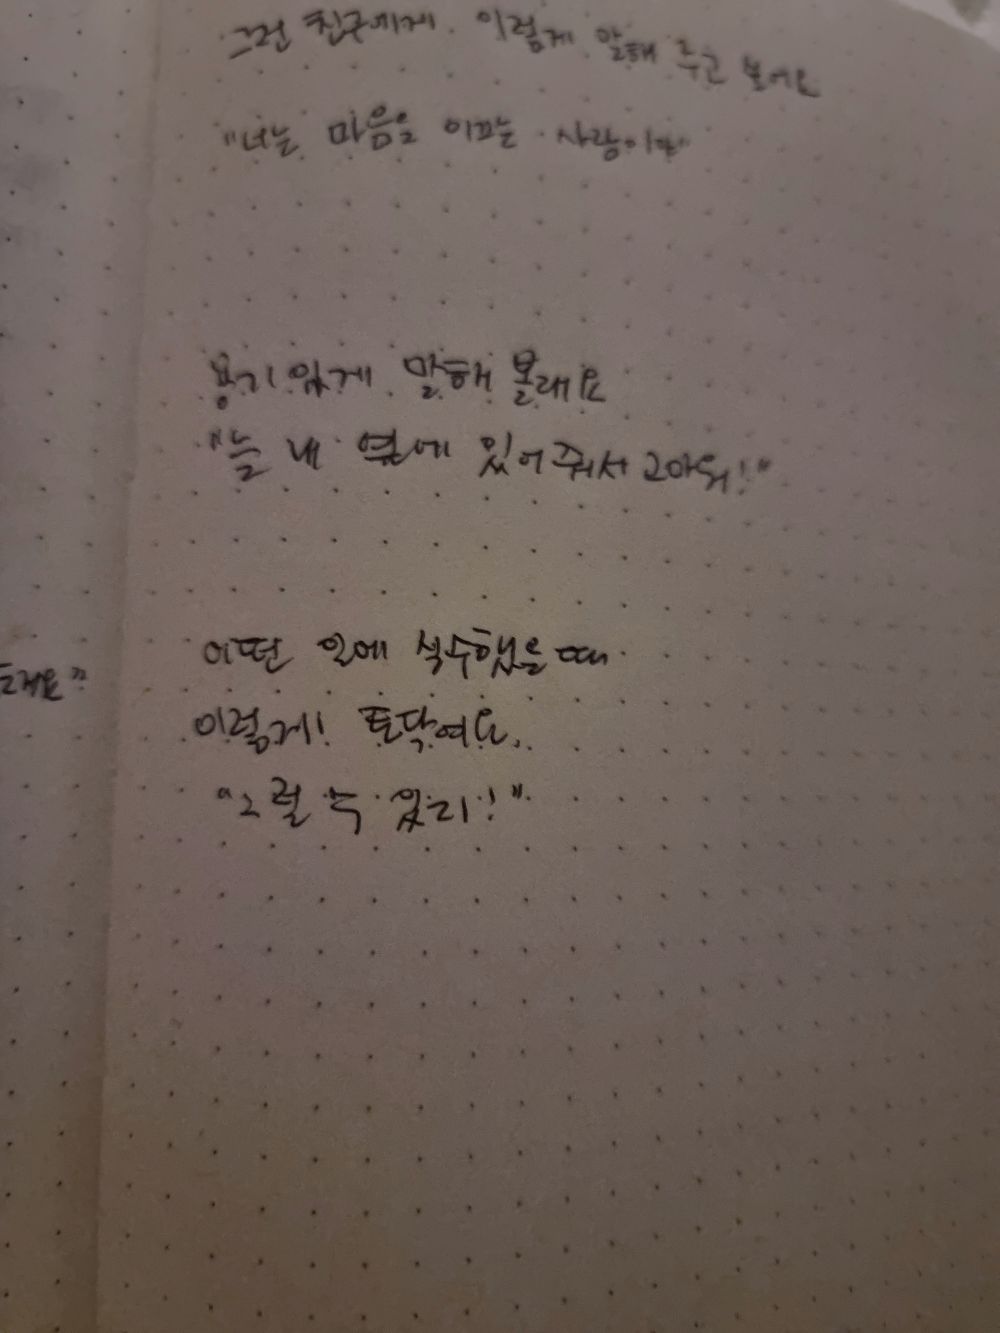 그런 친구에게 이렇게 말해 주고 보어요
"너는 마음을 이끄는 사람이야"
용기있게 말해 볼래요
"늘 내 옆에 있어줘서 고마워!"
어떤 일에 실수했을 때
이렇게! 토닥여요.
"그럴 수 있지!"